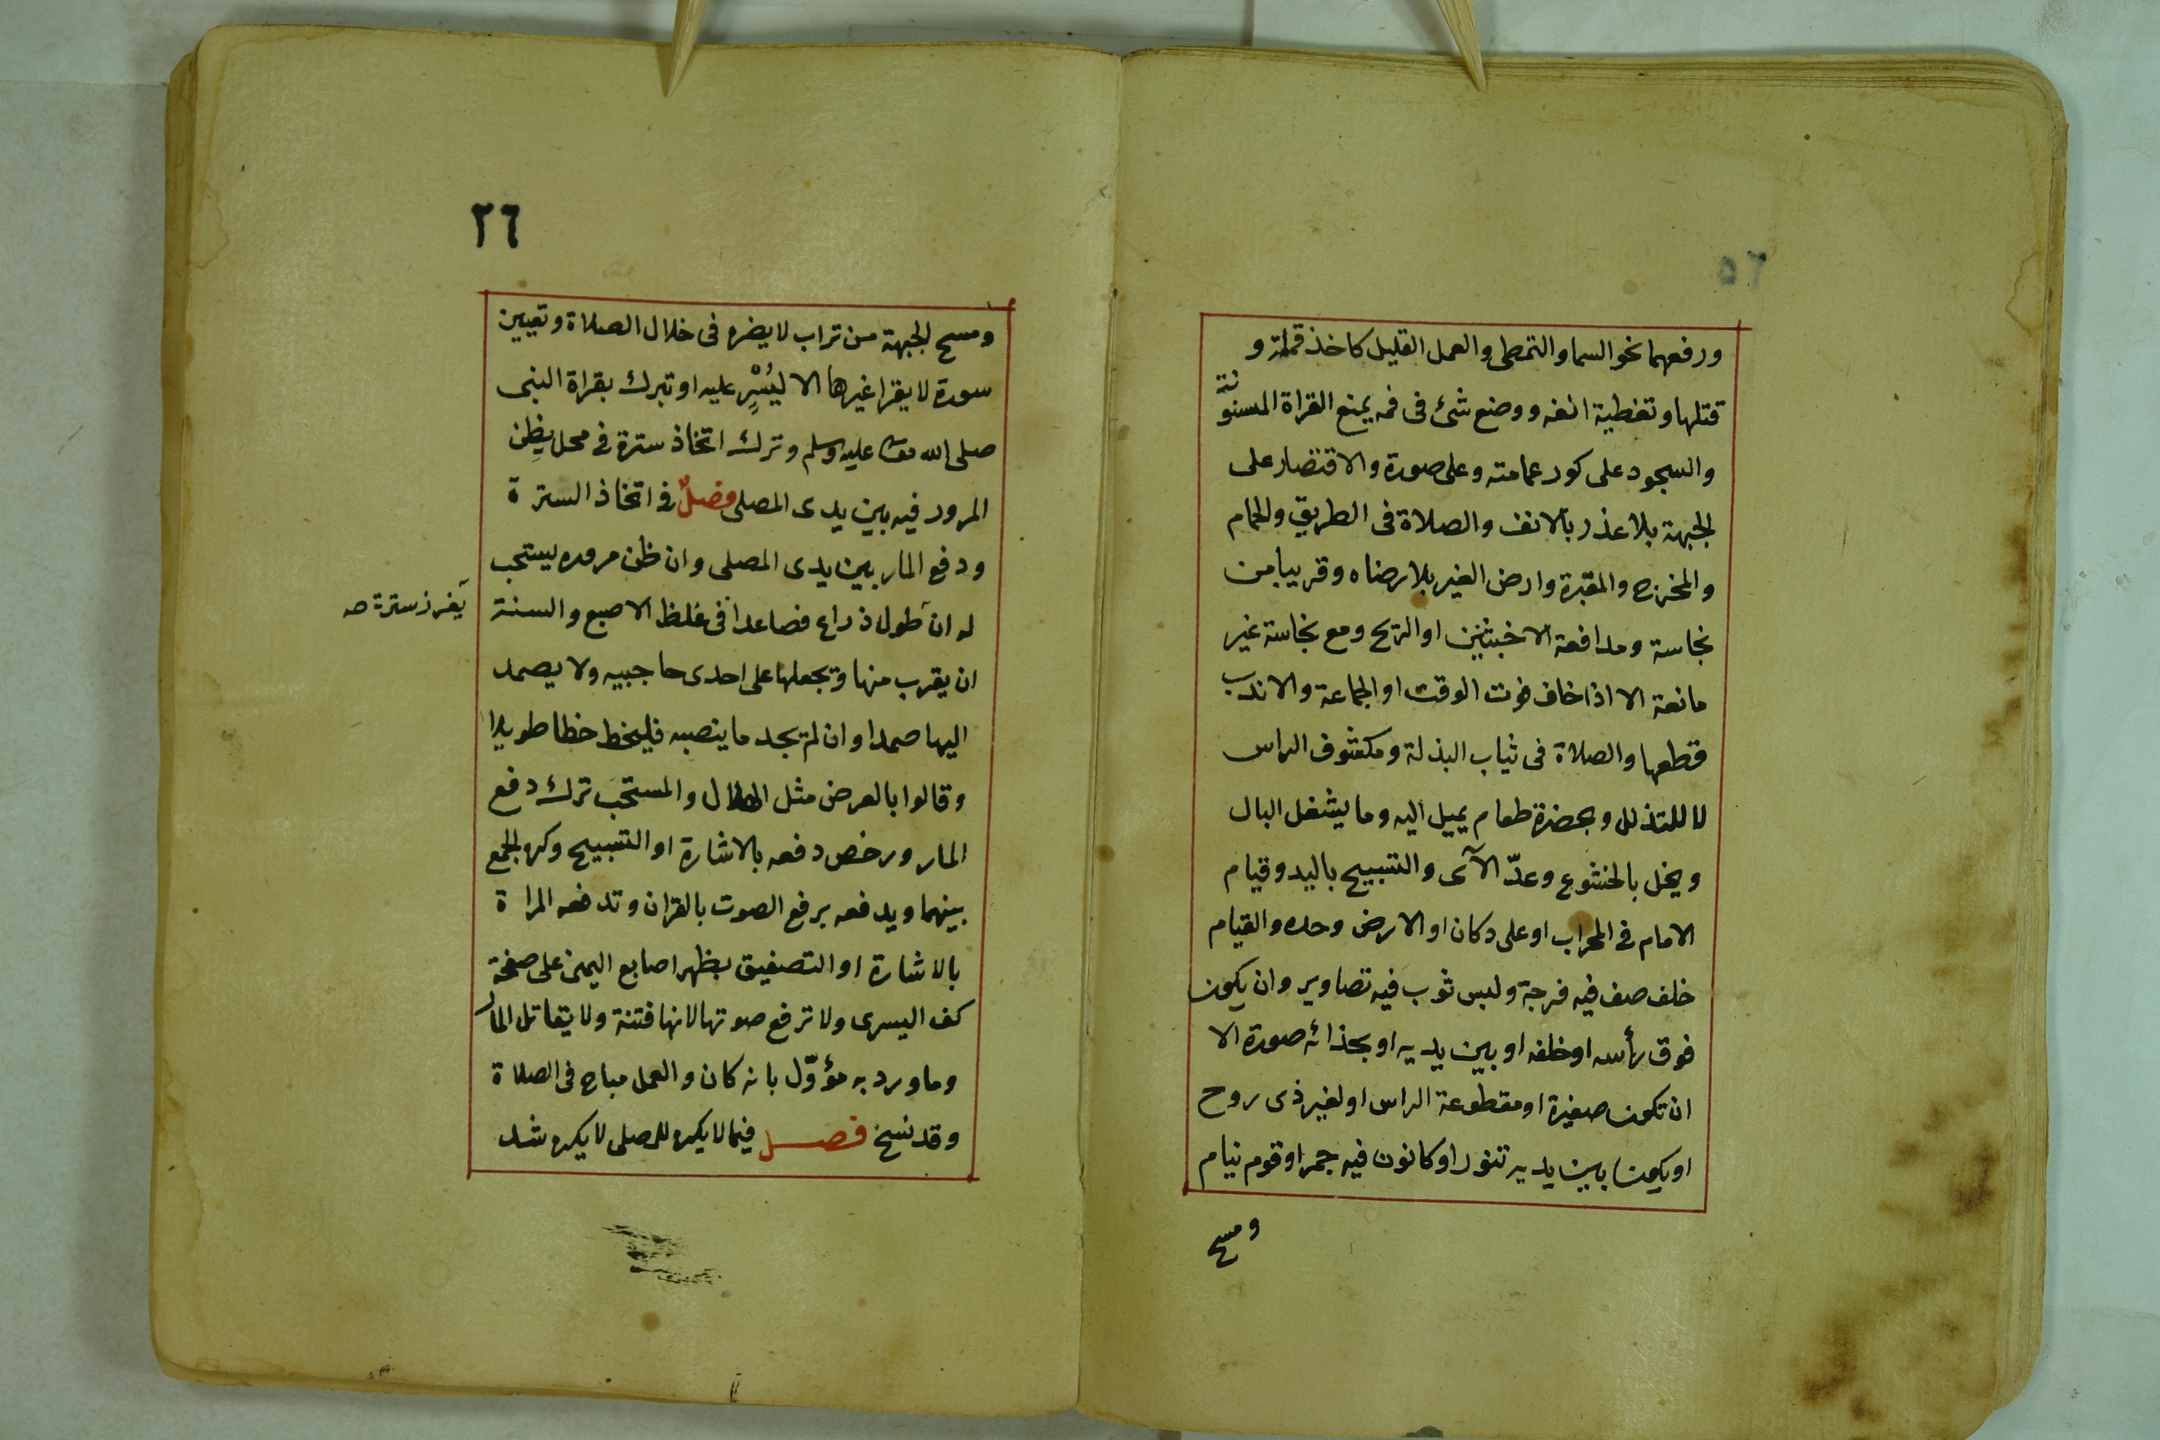 ورفعهما نحو السما والتمطى والعمل القليل كاخذ قملة و
قتلها وتغطية انفه ووضع شئ فى فمه يمنع القراة المسنونة
والسجود على كور عمامته وعلى صورة والاقتصار على
الجبهة بلا عذر بالانف والصلاة فى الطريق والحمام
والمخرج والمقبرة وارض الغير بلا رضاه وقريبا من
نجاسة ومدافعة الاخبثين او الريح ومع نجاسة غير
مانعة الا اذا خاف فوت الوقت او الجماعة والا ندب
قطعها والصلاة فى ثياب البذلة ومكشوف الراس
لا للتذلل وبحضرة طعام يميل اليه وما يشغل البال
ويخل بالخشوع وعدّ الآى والتسبيح باليد وقيام
الامام فى المحراب او على دكان او الارض وحده والقيام
خلف صف فيه فرجة ولبس ثوب فيه تصاوير وان يكون
فوق رأسه او خلفه او بين يديه او بحذائه صورة الا
ان تكون صغيرة او مقطوعة الراس او لغير ذى روح
او يكون بين يديه تنور او كانون فيه جمر او قوم نيام
ومسح
٢٦
ومسح الجبهة من تراب لا يضره فى خلال الصلاة وتعيين
سورة لا يقرا غيرها الا ليُسْرٍ عليه او تبرك بقراة النبى
صلى الله تعالى عليه وسلم وترك اتخاذ سترة فى محل يظن
المرور فيه بين يدى المصلى فصلٌ فى اتخاذ السترة
ودفع المار بين يدى المصلى وان ظن مروره يستحب
له ان طول ذراع فصاعدا فى غلظ الاصبع والسنة
يغرز سترة صه
ان يقرب منها ويجعلها على احدى حاجبيه ولا يصمد
اليها صمدا وان لم يجد ما ينصبه فليخط خطا طويلا
وقالوا بالعرض مثل الهلال والمستحب ترك دفع
المار ورخص دفعه بالاشارة او التسبيح وكره الجمع
بينهما ويدفعه برفع الصوت بالقران وتدفعه المراة
بالاشارة او التصفيق بظهر اصابع اليمنى على صفحة
كف اليسرى ولا ترفع صوتها لانها فتنة ولا يقاتل المار
وما ورد به مؤوّل بانه كان والعمل مباح فى الصلاة
وقد نسخ فصل فيما لا يكره للمصلى لا يكره شد